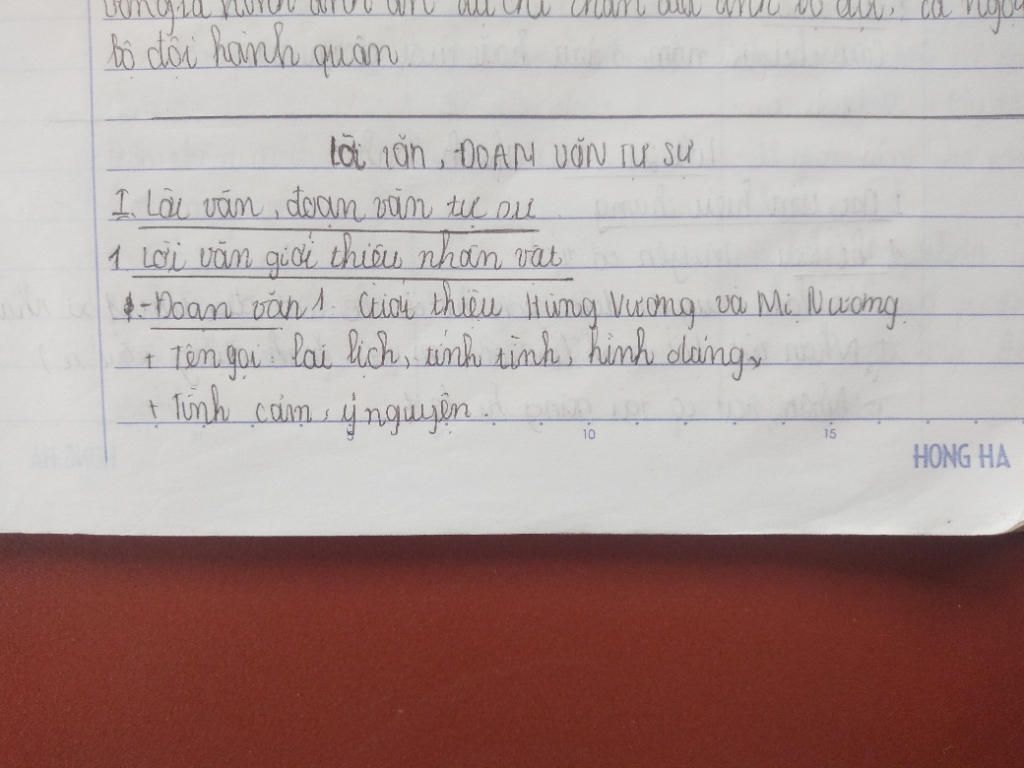 bộ đội hành quân
LỜI VĂN, ĐOẠN VĂN TỰ SỰ
I. Lời văn, đoạn văn tự sự
1. Lời văn giới thiệu nhân vật
- Đoạn văn 1. Giới thiệu Hùng Vương và Mị Nương
+ Tên gọi lai lịch, tính tình, hình dáng,
+ Tình cảm, ý nguyện.
5 10 15
HONG HA